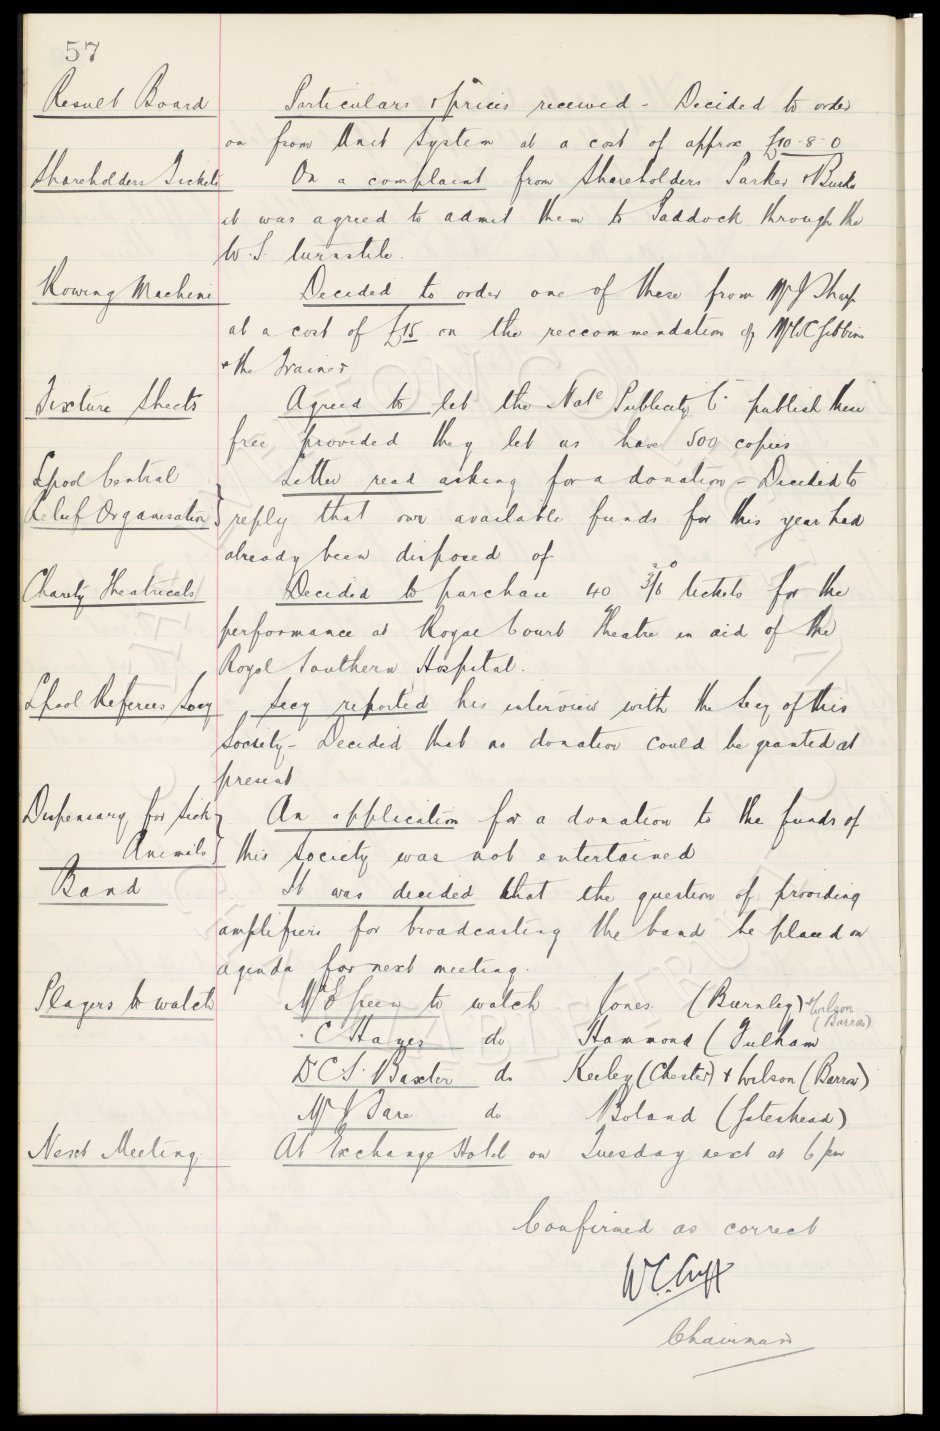 57
Result Board Particulars & prices received - Decided to order
on from Unit System at a cost of approx £10-8-0
Shareholders Tickets On a complaint from Shareholders Parker &
it was agreed to admit them to Paddock through the
W.S. turnstile.
Rowing Machine Decided to order one of these from Mr J Sharp
at a cost of £15 on the reccommendation of Mr W C Gibbins
& the Trainer
Fixture Sheets Agreed to let the Natl Publicity Co publish these
free provided they let us have 500 copies
Lpool Central Letter read asking for a donation - Decided to
Relief Organisation } reply that our available funds for this year had
already been disposed of
Charity Theatricals Decided to purchase 40 tickets for the
performance at Royal Court Theatre in aid of the
Royal Southern Hospital.
Lpool Referees Socy Secy reported his interview with the Secy of this
Society - Decided that no donation could be granted at
present
Dispensary for Sick An application for a donation to the funds of
Animals } this Society was not entertained
Band It was decided that the question of providing
amplifiers for broadcasting the band be placed on
agenda for next meeting.
Players to watch Mr E Green to watch Jones (Burnley) & Wilson
(Barrow)
" C Hayes do Hammond (Fulham
Dr C S Baxter do Keeley (Chester) & Wilson (Barrow)
Mr J Fare do Boland (Gateshead)
Next Meeting. At Exchange Hotel on Tuesday next at 6 pm
Confirmed as correct
W.C. Cuff
Chairman